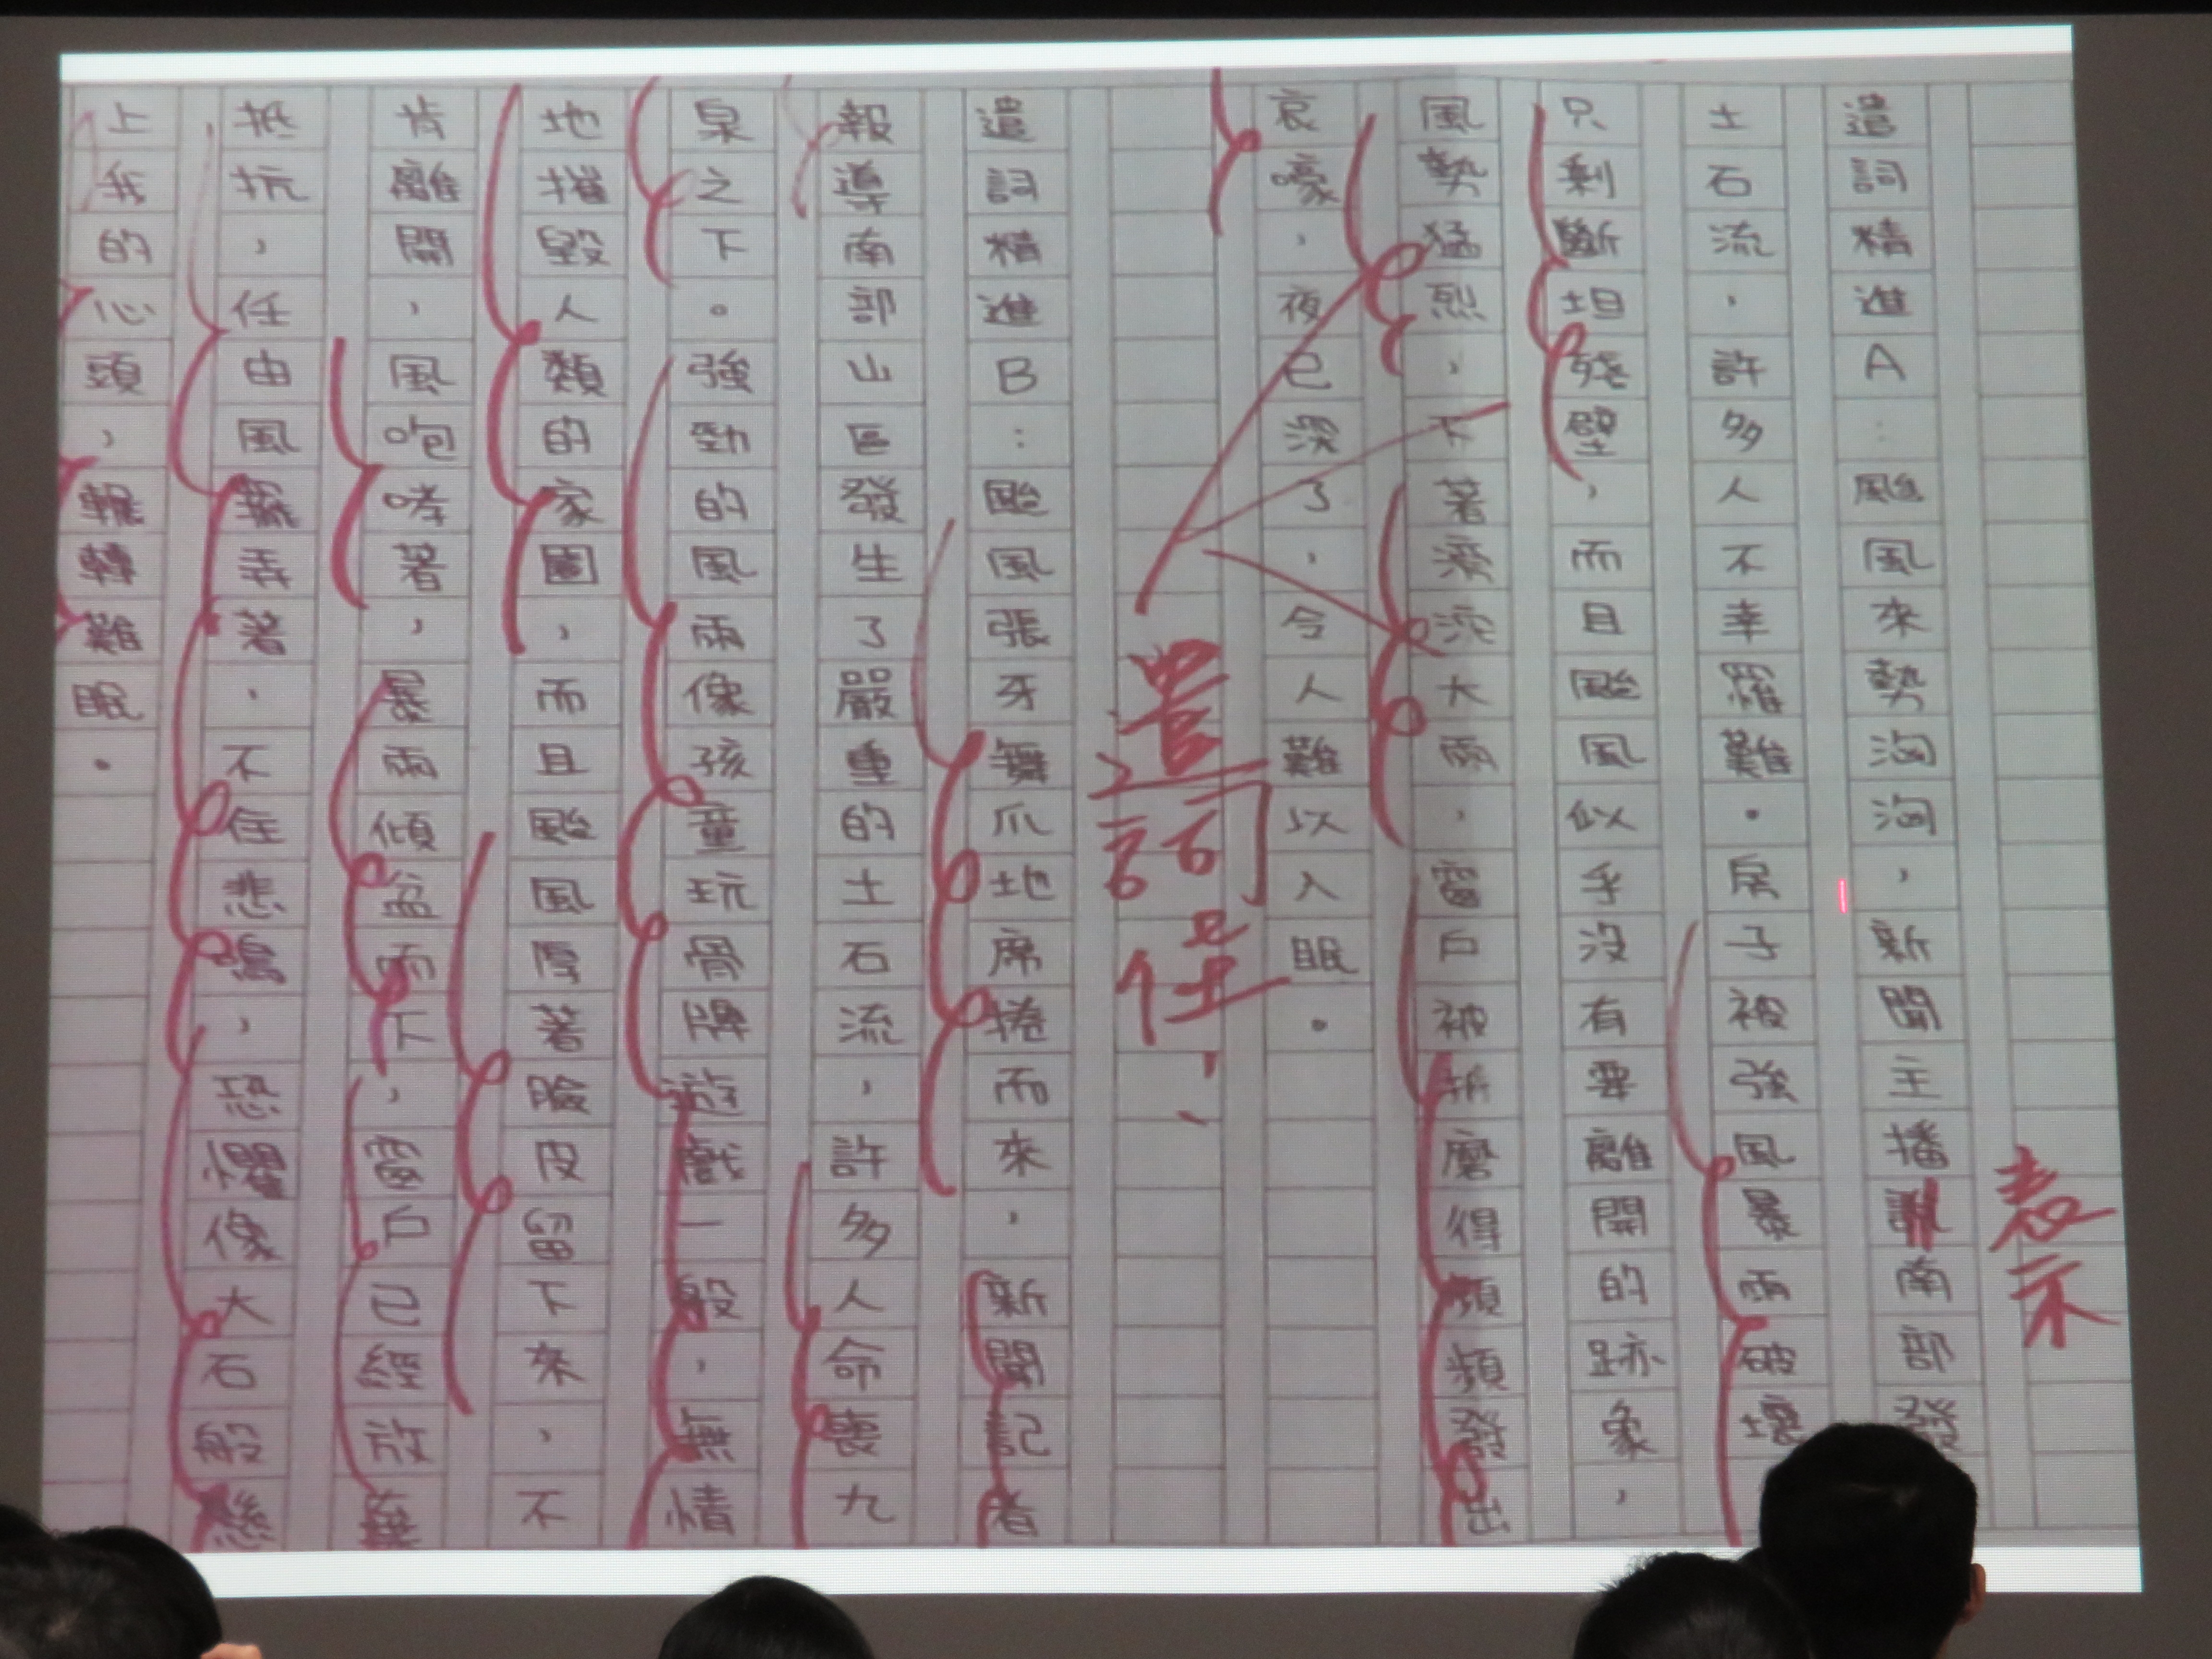 遣詞精進A：颱風來勢洶洶，新聞主播說南部發
表示
土石流，許多人不幸罹難。房子被強風暴雨破壞
只剩斷坦殘壁，而且颱風似乎沒有要離開的跡象，
風勢猛烈，下著滂沱大雨，窗戶被折磨得頻頻發出
哀嚎，夜已深了，令人難以入眠。
遣詞佳！
遣詞精進B：颱風張牙舞爪地席捲而來，新聞記者
報導南部山區發生了嚴重的土石流，許多人命喪九
泉之下。強勁的風雨像孩童玩骨牌遊戲一般，無情
地摧毀人類的家園，而且颱風厚著臉皮留下來，不
肯離開，風咆哮著，暴雨傾盆而下，窗戶已經放棄
抵抗，任由風擺弄著，不住悲鳴，恐懼像大石般懸
上我的心頭，輾轉難眠。